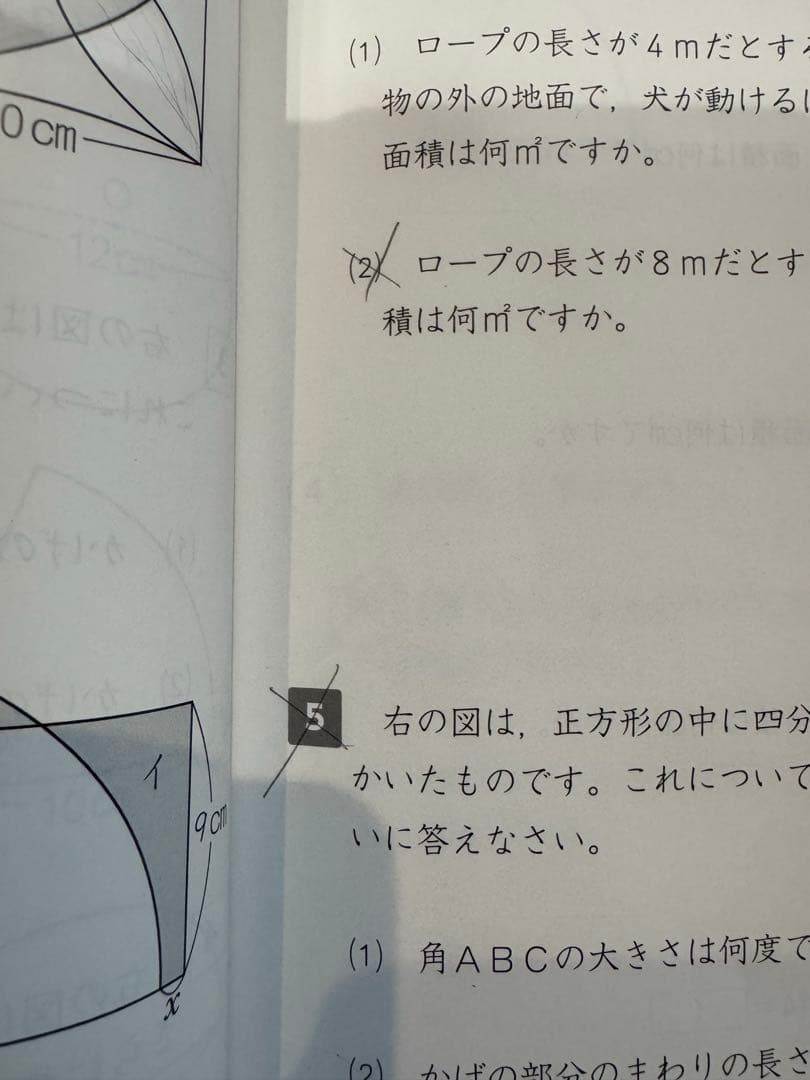 0cm
イ
9cm
x
(1) ロープの長さが4mだとする
物の外の地面で，犬が動ける
面積は何㎡ですか。
(2) ロープの長さが8mだとす
積は何㎡ですか。
5 右の図は，正方形の中に四分
かいたものです。これについて
いに答えなさい。
(1) 角ABCの大きさは何度で
(2) かげの部分のまわりの長さ